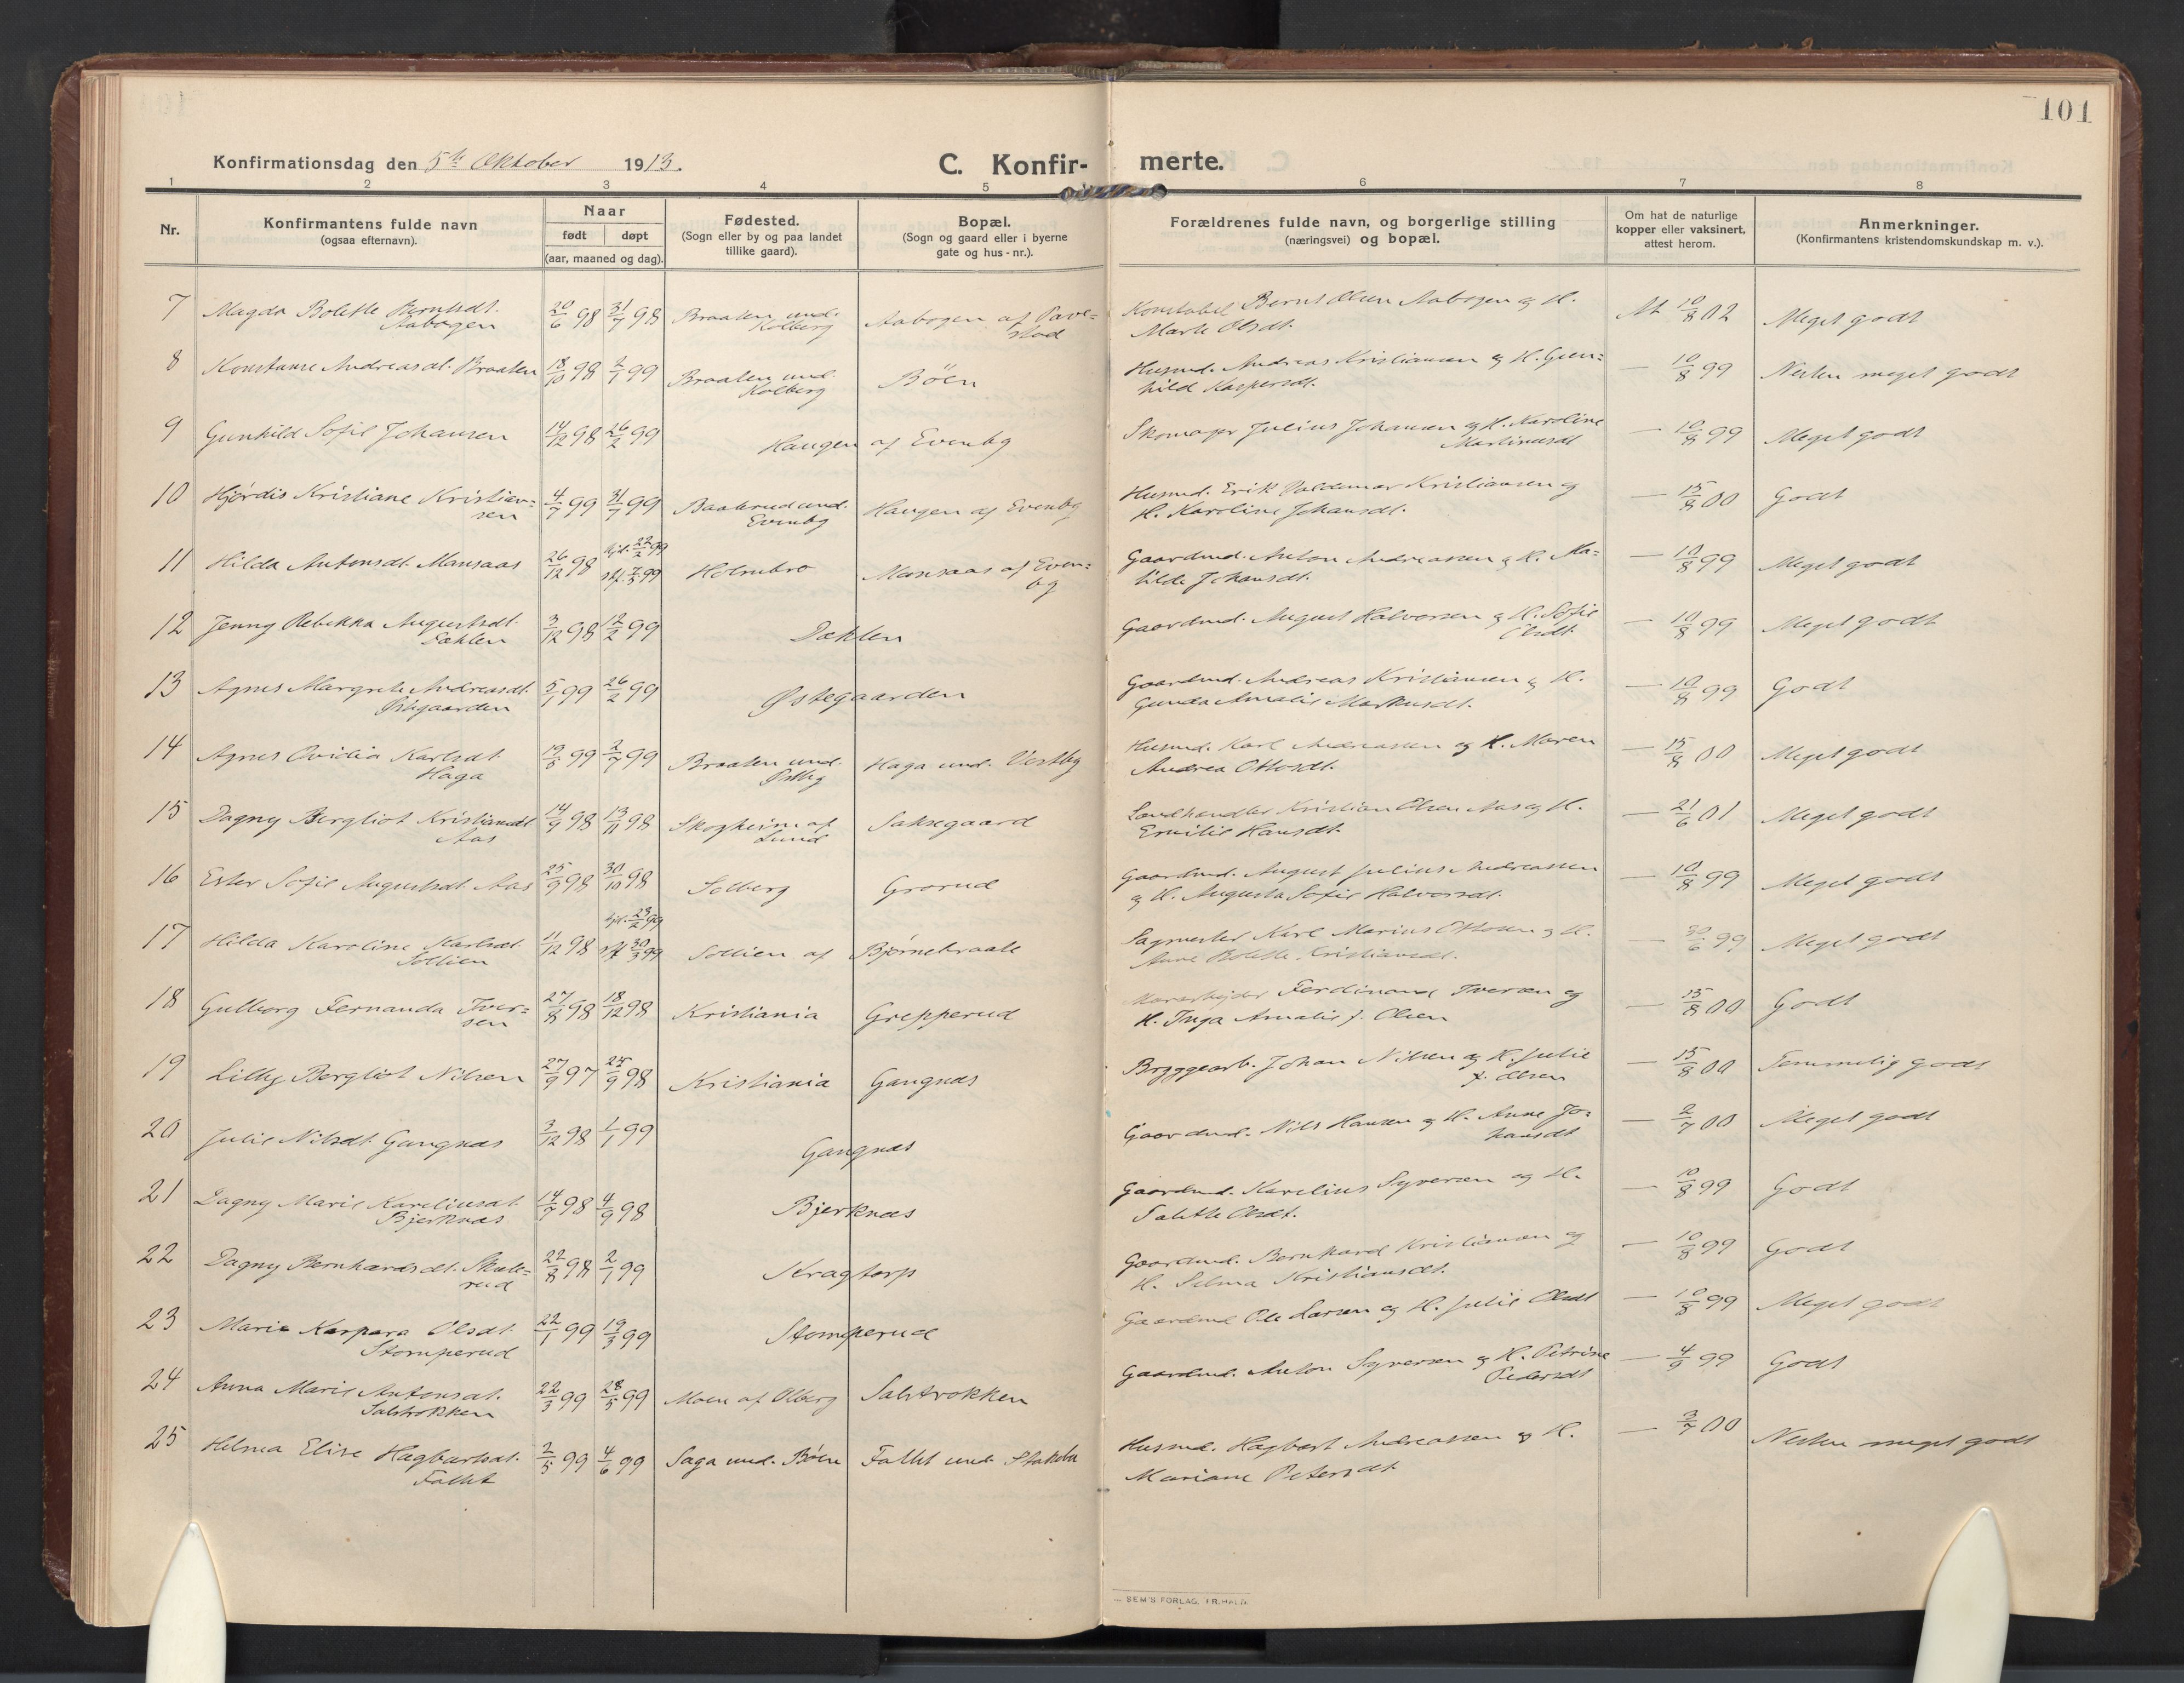 101
Konfirmationsdag den 5te Oktober 1913.
C. Konfir- merte.
1 2 3 4 5 6 7 8
Nr.
Konfirmantens fulde navn
(ogsaa efternavn).
Naar
født døpt
(aar, maaned og dag).
Fødested.
(Sogn eller by og paa landet
tillike gaard).
Bopæl.
(Sogn og gaard eller i byerne
gate og hus-nr.).
Forældrenes fulde navn, og borgerlige stilling
(næringsvei) og bopæl.
Om hat de naturlige
kopper eller vaksinert,
attest herom.
Anmerkninger.
(Konfirmantens kristendomskundskap m. v.).
7 Magda Bolette Berntsdt. 20/6 98 31/7 98 Braaten und. Aabogen af Pave- Konstabel Bernt Olsen Aabogen og H. At 10/8 02 Meget godt
Aabogen Kolberg stad Marte Olsdt.
8 Konstanse Andreasdt. Braaten 18/10 98 2/1 99 Braaten und. Böen Husmd. Andreas Kristiansen og H. Gun= — 10/8 99 Nesten meget godt
Kolberg hild Kaspersdt.
9 Gunhild Sofie Johansen 14/12 98 26/2 99 Haugen af Evenby Skomager Julius Johansen og H. Karoline — 10/8 99 Meget godt
Martinusdt
10 Hjördis Kristiane Kristian= 4/7 99 31/7 99 Baaserud und. Haugen af Evenby Husmd. Erik Valdemar Kristiansen og — 15/8 00 Godt
sen Evenby H. Karoline Johansdt.
11 Hilda Antonsdt. Mansaas 26/12 98 hjd. 22/2 99 Holmbro Mansaas af Even= Gaardmd. Anton Andreassen og H. Ma= — 10/8 99 Meget godt
stf. 7/3 99 by tilde Johansdt.
12 Jenny Rebekka Augustsdt. 3/12 98 12/2 99 Dæhlen Gaardmd. August Halvorsen og H. Sofie — 10/8 99 Meget godt
Dæhlen Olsdt.
13 Agnes Margrete Andreasdt. 5/1 99 26/2 99 Østegaarden Gaardmd. Andreas Kristiansen og H. — 10/8 99 Godt
Østegaarden Gunda Amalie Markusdt.
14 Agnes Ovidia Karlsdt. 19/5 99 2/7 99 Braaten und. Haga und. Vestby Husmd. Karl Andreassen og H. Maren — 15/8 00 Meget godt
Haga Østby Andrea Ottosdt.
15 Dagny Bergliot Kristiansdt 14/9 98 13/11 98 Skogheim af Saksegaard Landhandler Kristian Olsen Aas og H. — 21/6 01 Meget godt
Aas Lund Emilie Hansdt.
16 Ester Sofie Augustsdt. Aas 25/9 98 30/10 98 Solberg Grorud Gaardmd. August Julius Andreassen — 10/8 99 Meget godt
og H. Augusta Sofie Halvorsdt.
17 Hilda Karoline Karlsdt. 11/12 98 hjd. 23/2 99 Sollien af Bjørnebraate Sagmester Karl Marius Ottosen og H. — 30/6 99 Meget godt
Sollien stf 30/3 99 Anne Bolette Kristiansdt.
18 Gulborg Fernanda Iver= 27/8 98 18/12 98 Kristiania Grepperud Ferdinand Iversen og — 15/8 00 Godt
sen H. Inga Amalie f. Olsen
19 Lilly Bergliot Nilsen 27/9 97 25/9 98 Kristiania Gangnæs Bryggearb. Johan Nilsen og H. Julie — 15/8 00 Temmelig godt
f. Olsen
20 Julie Nilsdt. Gangnæs 3/12 98 1/1 99 Gangnæs Gaardmd. Nils Hansen og H. Anne Jo= — 2/7 00 Meget godt
hansdt
21 Dagny Marie Kareliusdt. 14/7 98 4/9 98 Bjerknæs Gaardmd. Karelius Syversen og H. — 10/8 99 Godt
Bjerknæs Oladt.
22 Dagny Bernhardsdt. Skule= 22/8 98 2/1 99 Kragtorp Gaardmd. Bernhard Kristiansen og — 10/8 99 Godt
rud H. Selma Kristiansdt.
23 Marie Kaspara Olsdt. 22/1 99 19/3 99 Stomperud Gaardmd Ole Larsen og H. Julie Olsdt — 10/8 99 Meget godt
Stomperud
24 Anna Marie Antonsdt. 22/3 99 28/5 99 Moen af Olberg Salstrokken Gaardmd. Anton Syversen og H. Petrine — 4/9 99 Godt
Salstrokken Pedersdt
25 Helma Elise Hagbartsdt. 2/5 99 4/6 99 Saga und. Böen Fallet und. Husmd. Hagbart Andreassen og H. — 3/7 00 Nesten meget godt
Fallet Mariane Petersdt.
SEM'S FORLAG, FR.HALD.